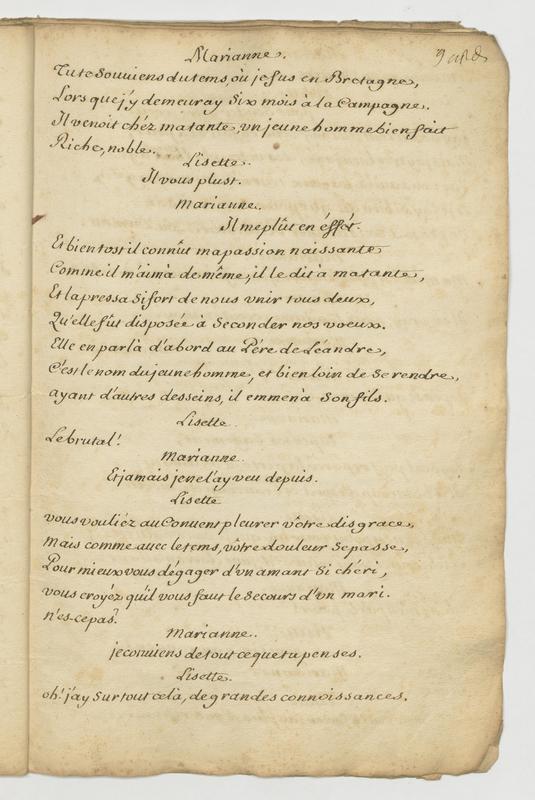 Marianne.
Tu te Souuiens du tems, où je fus en Bretagne,
Lors que j'y demeuray Six mois à la Campagne.
Il venoit chéz ma tante, vn jeune homme bien fait
Riche, noble.
Lisette.
Il vous plust.
Marianne.
Il me plût en éffét.
Et bientost il connût ma passion naissante
Comme il m'aima de même, il le dit à ma tante,
Et la pressa Si fort de nous vnir tous deux,
Qu'elle fût disposée à Seconder nos voeux.
Elle en parlà d'abord au Pére de Léandre,
C'est le nom du jeune homme, et bien loin de Se rendre,
ayant d'autres desseins, il emmenà Son fils.
Lisette.
Le brutal!
Marianne.
Et jamais je ne l'ay veu depuis.
Lisette
vous vouliéz au Conuent pleurer vôtre disgrace,
Mais comme auec le tems, vôtre douleur Se passe,
Pour mieux vous dégager d'vn amant Si chéri,
vous croyez qu'il vous faut le Secours d'vn mari.
n'es-ce pas?
Marianne.
je conuiens de tout ce que tu penses.
Lisette.
oh! j'ay Sur tout celà, de grandes connoissances.